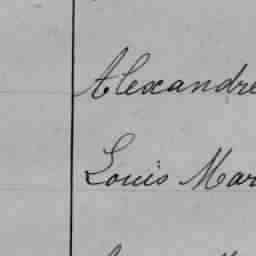 Alexandre
Louis Mar